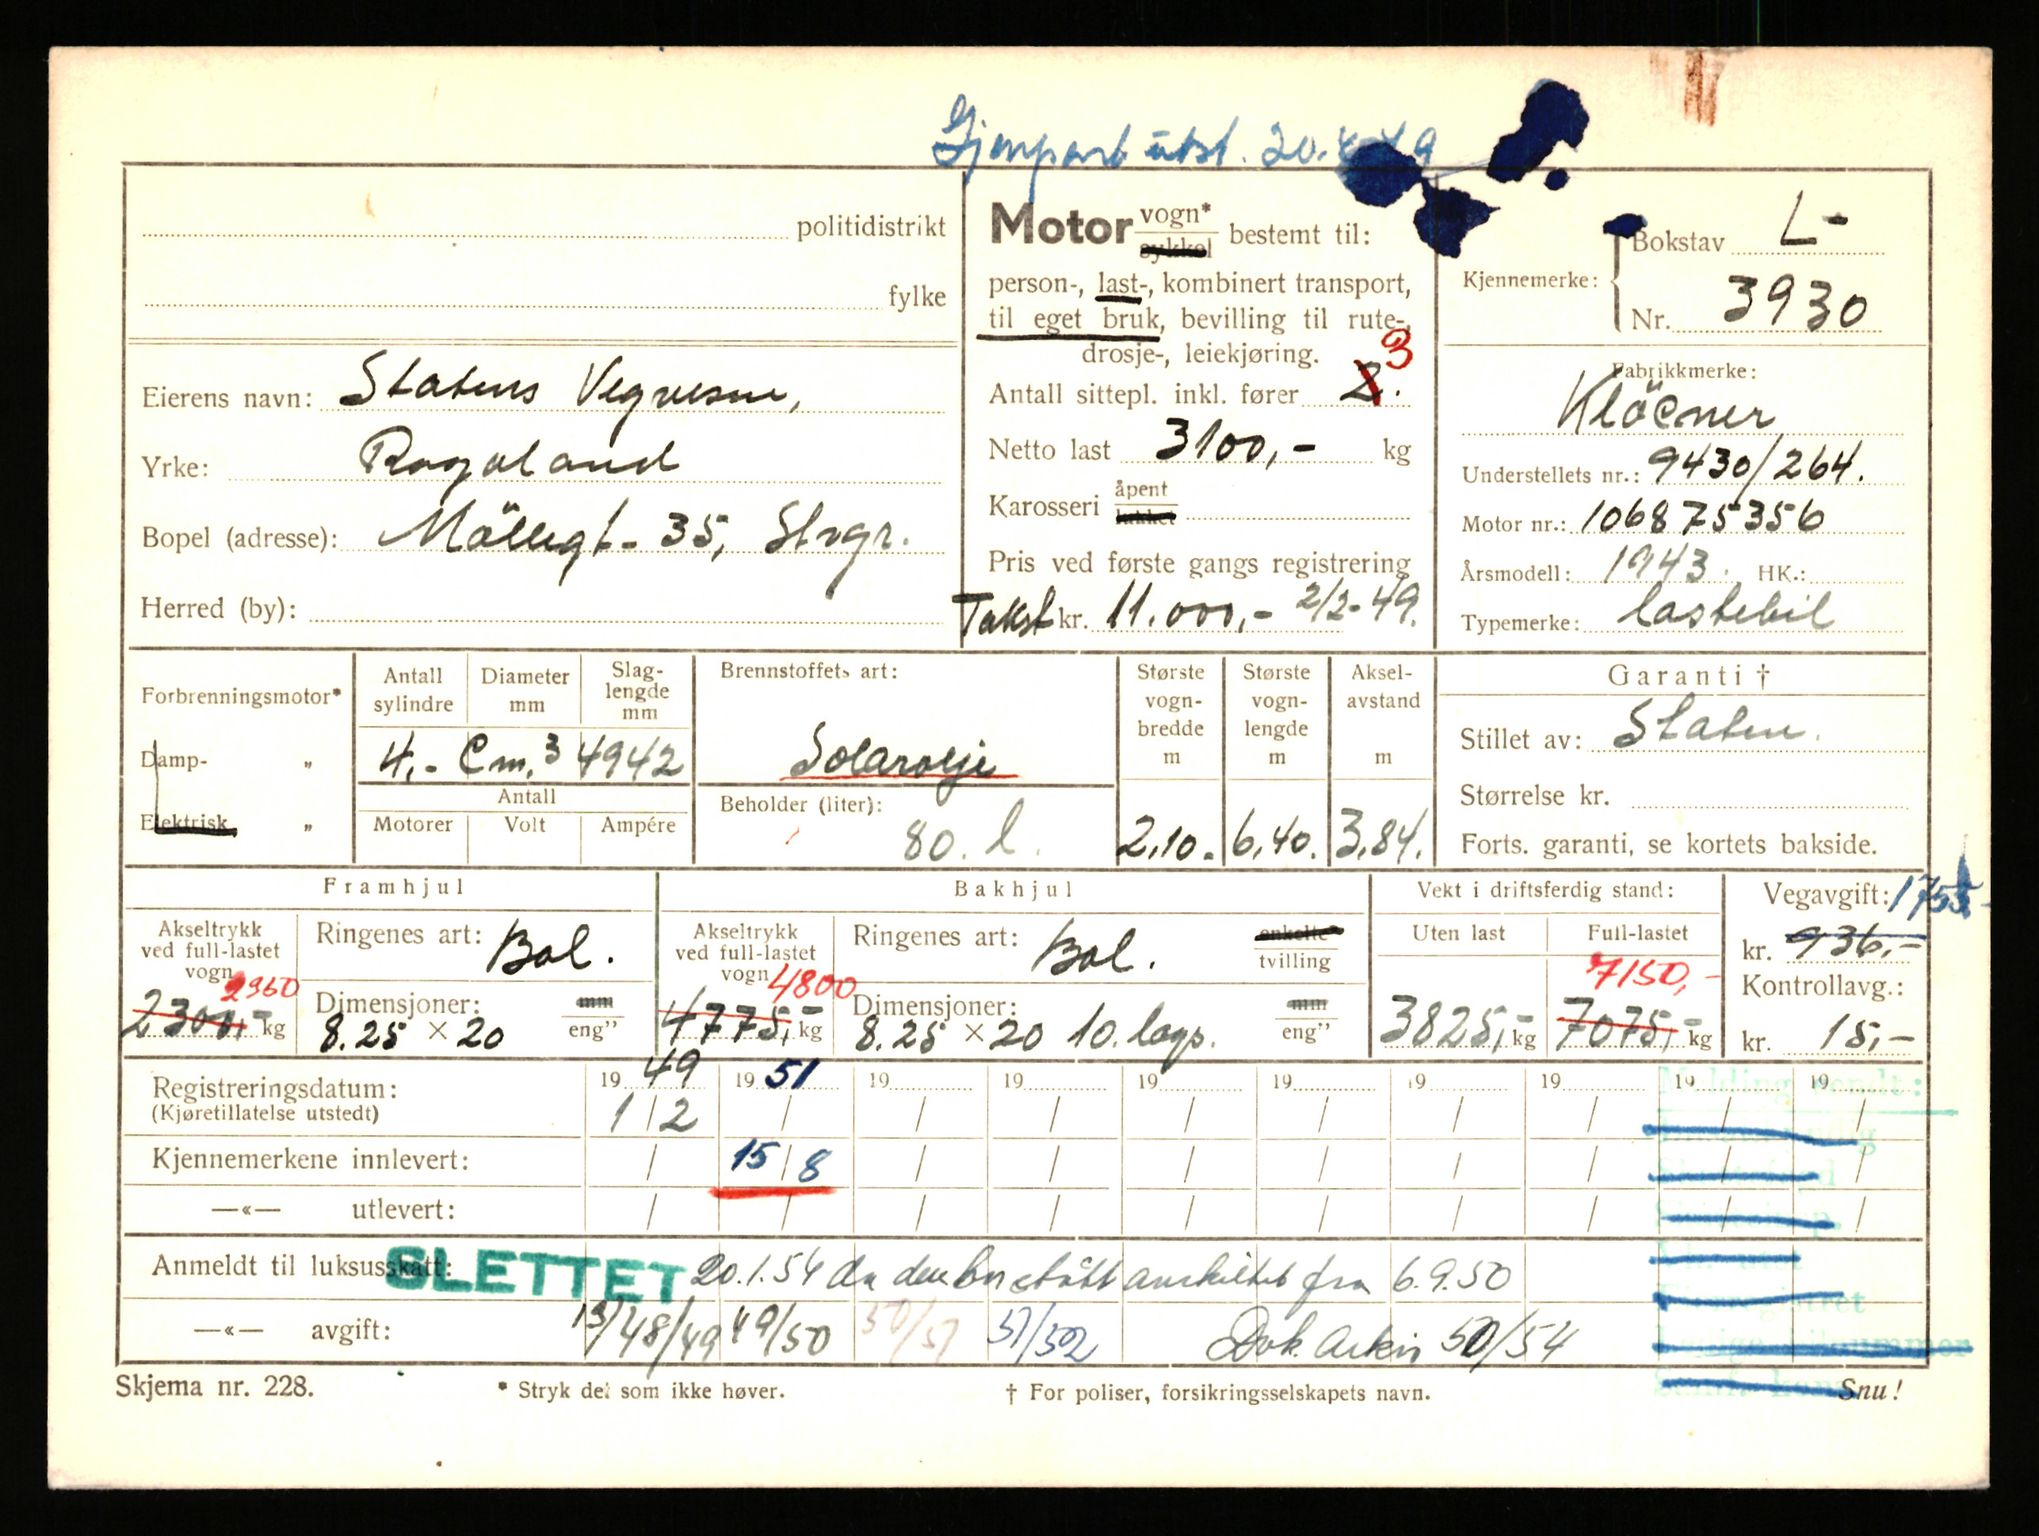 Gjenpart utst. 20.4.49
politidistrikt
fylke
Eierens navn: Statens Vegvesen,
Yrke: Rogaland
Bopel (adresse): Möllegt. 35, Stvgr.
Herred (by):
Motor vogn* sykkel bestemt til:
person-, last-, kombinert transport,
til eget bruk, bevilling til rute-,
drosje-, leiekjøring.
Antall sittepl. inkl. fører 2. 3
Netto last 3100,- kg
Karosseri åpent lukket
Pris ved første gangs registrering
Takst kr. 11.000,- 2/2-49.
Kjennemerke: Bokstav L-
Nr. 3930
Fabrikkmerke:
Klöcner
Understellets nr.: 9430/264.
Motor nr.: 106875356
Årsmodell: 1943. HK.:
Typemerke: lastebil
Forbrenningsmotor*
Damp- „
Elektrisk „
Antall sylindre
Diameter mm
Slag-lengde mm
4,- Cm.3 4942
Antall
Motorer Volt Ampére
Brennstoffets art:
Solarolje
Beholder (liter):
80. l.
Største vogn-bredde m
2,10.
Største vogn-lengde m
6,40.
Aksel-avstand m
3,84.
Garanti †
Stillet av: Staten.
Størrelse kr.
Forts. garanti, se kortets bakside.
Framhjul
Akseltrykk ved full-lastet vogn
2960
2300,- kg
Ringenes art: Bal.
Dimensjoner: mm
8.25 × 20 eng”
Bakhjul
Akseltrykk ved full-lastet vogn
4800
4775,- kg
Ringenes art: Bal. enkelte* tvilling
Dimensjoner: mm
8.25 × 20 10. lags. eng”
Vekt i driftsferdig stand:
Uten last Full-lastet
7150,-
3825,- kg 7075,- kg
Vegavgift: 1755,-
kr. 936,-
Kontrollavg.:
kr. 15,-
Registreringsdatum: 19 49 19 51 19 19 19 19 19 19 19 19
(Kjøretillatelse utstedt) 1/2
Melding sendt:
Kjennemerkene innlevert: 15/8
—«— utlevert:
Anmeldt til luksusskatt: SLETTET 20.1.54 da den har stått avskiltet fra 6.9.50
—«— avgift: 13/48/49 49/50 50/51 51/52 Dok. Arkiv 50/54
Skjema nr. 228. * Stryk det som ikke høver. † For poliser, forsikringsselskapets navn. Snu!